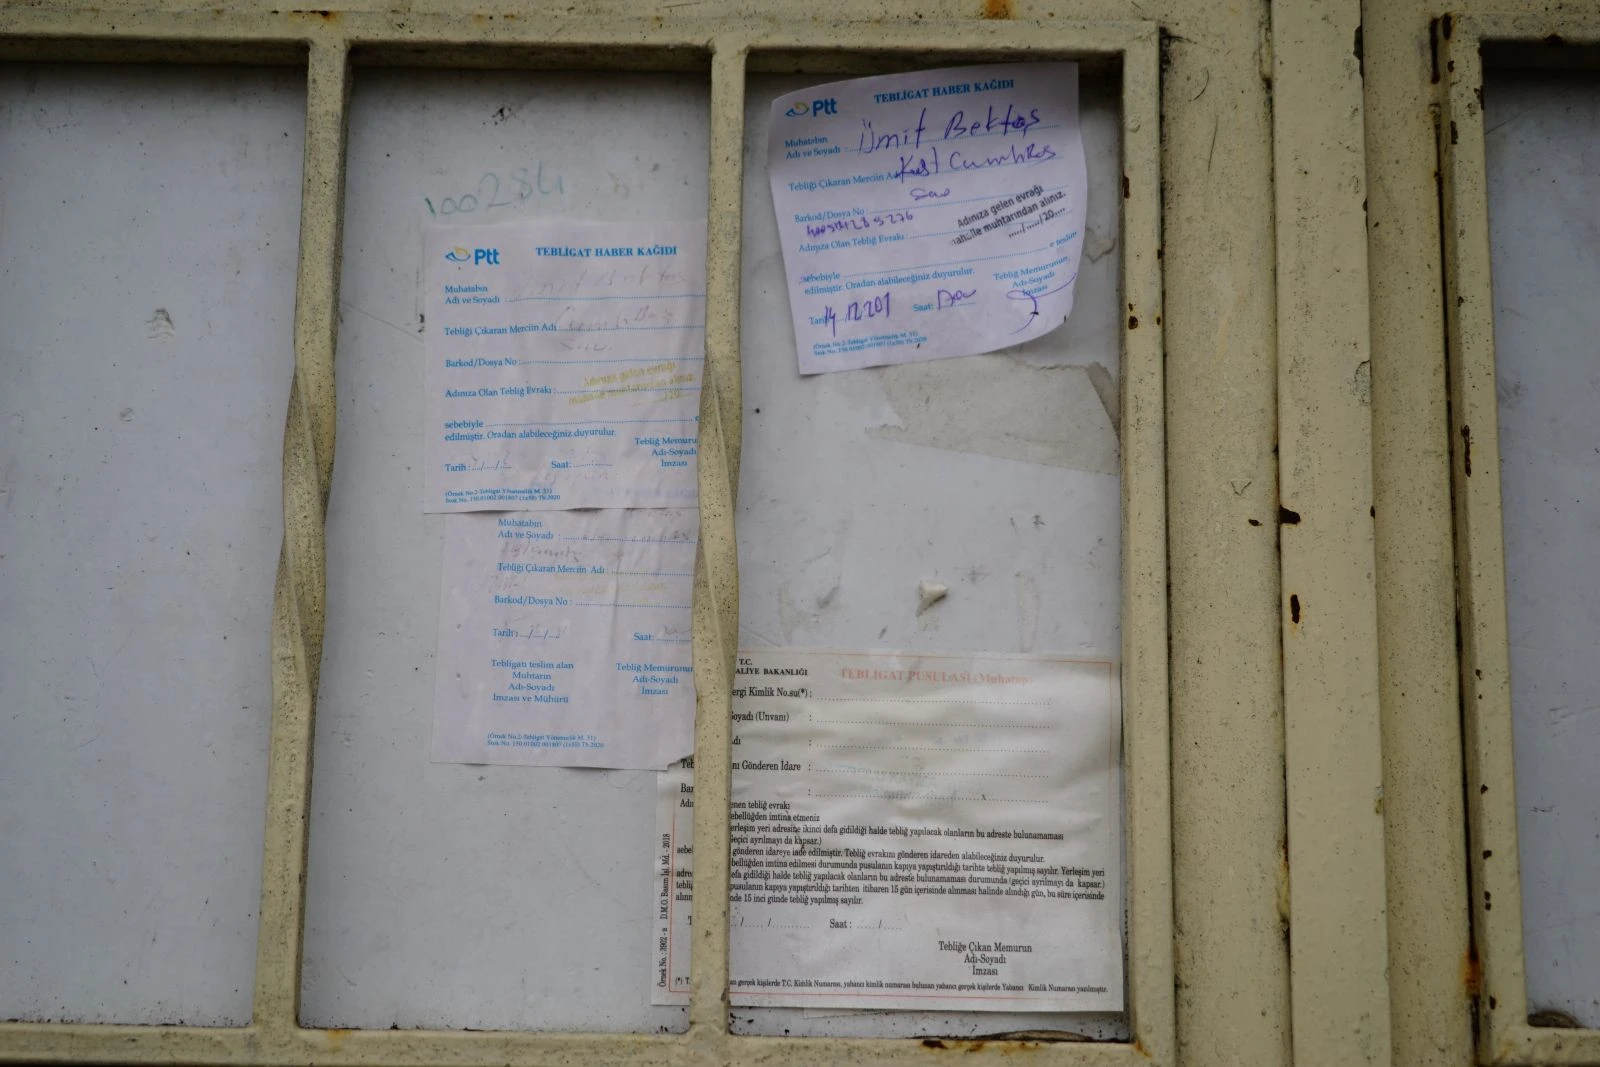 100284
Ptt TEBLİGAT HABER KAĞIDI
Muhatabın
Adı ve Soyadı :
Tebliği Çıkaran Merciin Adı
Barkod/Dosya No :
Adınıza gelen evrağı
mahalle muhtarından alınız.
Adınıza Olan Tebliğ Evrakı :
sebebiyle
edilmiştir. Oradan alabileceğiniz duyurulur.
Tebliğ Memuru
Adı-Soyadı
İmzası
Tarih : .../.../... Saat:
(Örnek No.2-Tebligat Yönetmelik M. 31)
Stok No. 150.01002.001807 (1x50) Th-2020
Muhatabın
Adı ve Soyadı :
Tebliği Çıkaran Merciin Adı :
Barkod/Dosya No :
Tarih : .../.../... Saat:
Tebligatı teslim alan
Muhtarın
Adı-Soyadı
İmzası ve Mührü
Tebliğ Memurunun
Adı-Soyadı
İmzası
(Örnek No.2-Tebligat Yönetmelik M. 31)
Stok No. 150.01002.001807 (1x50) Th-2020
Ptt TEBLİGAT HABER KAĞIDI
Muhatabın
Adı ve Soyadı : Ümit Bektaş
Tebliği Çıkaran Merciin Adı
Barkod/Dosya No :
Adınıza gelen evrağı
mahalle muhtarından alınız.
...../...../20....
Adınıza Olan Tebliğ Evrakı :
e teslim
sebebiyle
edilmiştir. Oradan alabileceğiniz duyurulur.
Tebliğ Memurunun
Adı-Soyadı
İmzası
Tarih 14.12.201 Saat:
(Örnek No.2-Tebligat Yönetmelik M. 31)
Stok No. 150.01002.001807 (1x50) Th-2020
T.C.
ALİYE BAKANLIĞI
TEBLİGAT PUSULASI (Muhatap)
ergi Kimlik No.su(*) :
Soyadı (Unvanı) :
Adı :
nı Gönderen İdare :
x
enen tebliğ evrakı
ebellüğden imtina etmeniz
erleşim yeri adresine ikinci defa gidildiği halde tebliğ yapılacak olanların bu adreste bulunamaması
geçici ayrılmayı da kapsar.)
gönderen idareye iade edilmiştir. Tebliğ evrakını gönderen idareden alabileceğiniz duyurulur.
bellüğden imtina edilmesi durumunda pusulanın kapıya yapıştırıldığı tarihte tebliğ yapılmış sayılır. Yerleşim yeri
defa gidildiği halde tebliğ yapılacak olanların bu adreste bulunamaması durumunda (geçici ayrılmayı da kapsar.)
pusulanın kapıya yapıştırıldığı tarihten itibaren 15 gün içerisinde alınması halinde alındığı gün, bu süre içerisinde
nde 15 inci günde tebliğ yapılmış sayılır.
/...../......... Saat : ...../.....
Tebliğe Çıkan Memurun
Adı-Soyadı
İmzası
an gerçek kişilerde T.C. Kimlik Numarası, yabancı kimlik numarası bulunan yabancı gerçek kişilerde Yabancı Kimlik Numarası yazılmıştır.
Örnek No. : 3902 - a D.M.O. Basım İşl. Md. - 2018